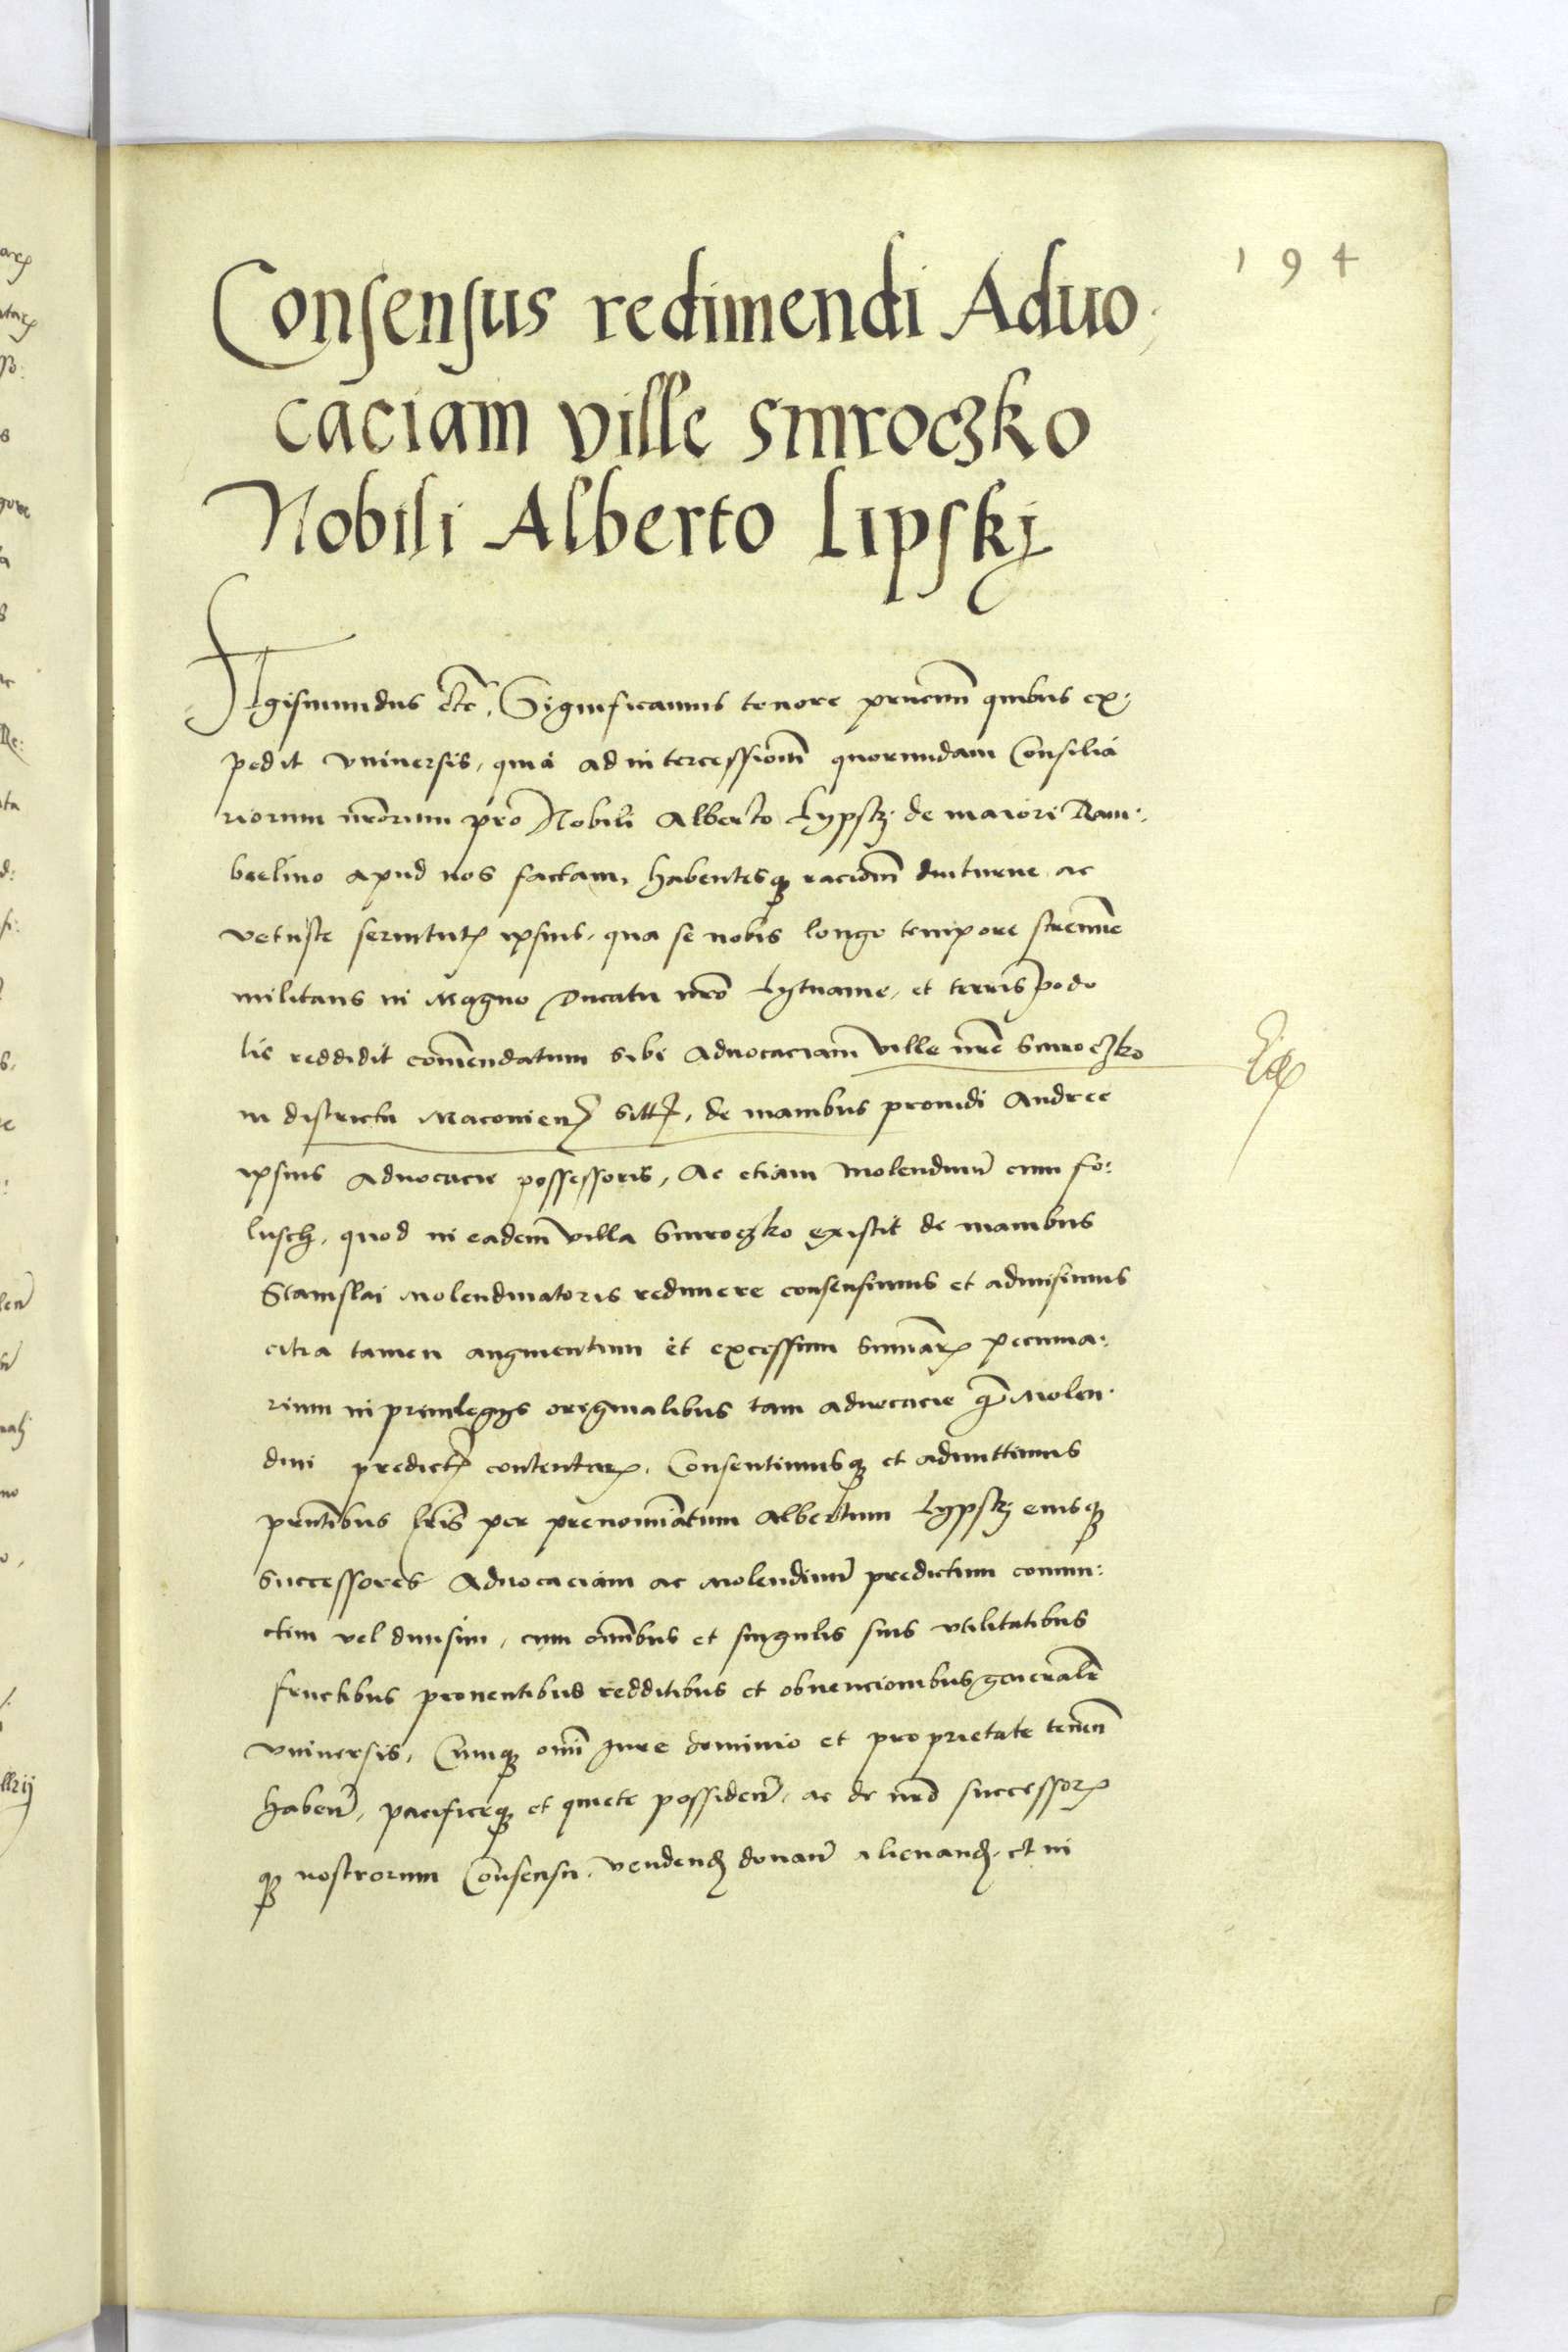 194
Consensus redimendi Aduo
caciam ville Smroczko
Nobili Alberto Lipskj
Sigismundus etc. Significamus tenore prncium quibus ex:
pedit vniuersis, quia ad intercessiom quorundam Consilia
riorum nrorum pro Nobili Alberto Lypsky de maiori Ram:
belino apud nos factam, habentesq raciom diuturne ac
vetuste seruitut ipsius, qua se nobis longo tempore strenue
militans in Magno Ducatu nro Lytuanie, et terris podo
lie reddidit comendatum sibi Aduocaciam ville nre Smroczko
in districtu Maconien sitt, de manibus prouidi Andree
ipsius Aduocacie possessoris, Ac etiam Molendinu cum fo:
lusch, quod in eadem villa Smroczko existit de manibus
Stanislai Molendinatoris redimere consensimus et admisimus
citra tamen augmentum et excessum sumar pecunia:
rium in priuilegys originalibus tam aduocacie q Molen:
dini predict contentar. Consentimusq et admittimus
prntibus lris per prenominatum Albertum Lypsky eiusq
successores Aduocaciam ac Molendinu predictum coniun:
ctim vel diuisim, cum omibus et singulis suis vtilitatibus
fructibus prouentibus redditibus et obuencionibus generalr
vniuersis, Cumq omi Jure dominio et proprietate tenen
haben, pacificeq et quiete possiden, ac de nro successor
q nostrorum Consensu, vendend donan alienand, et in